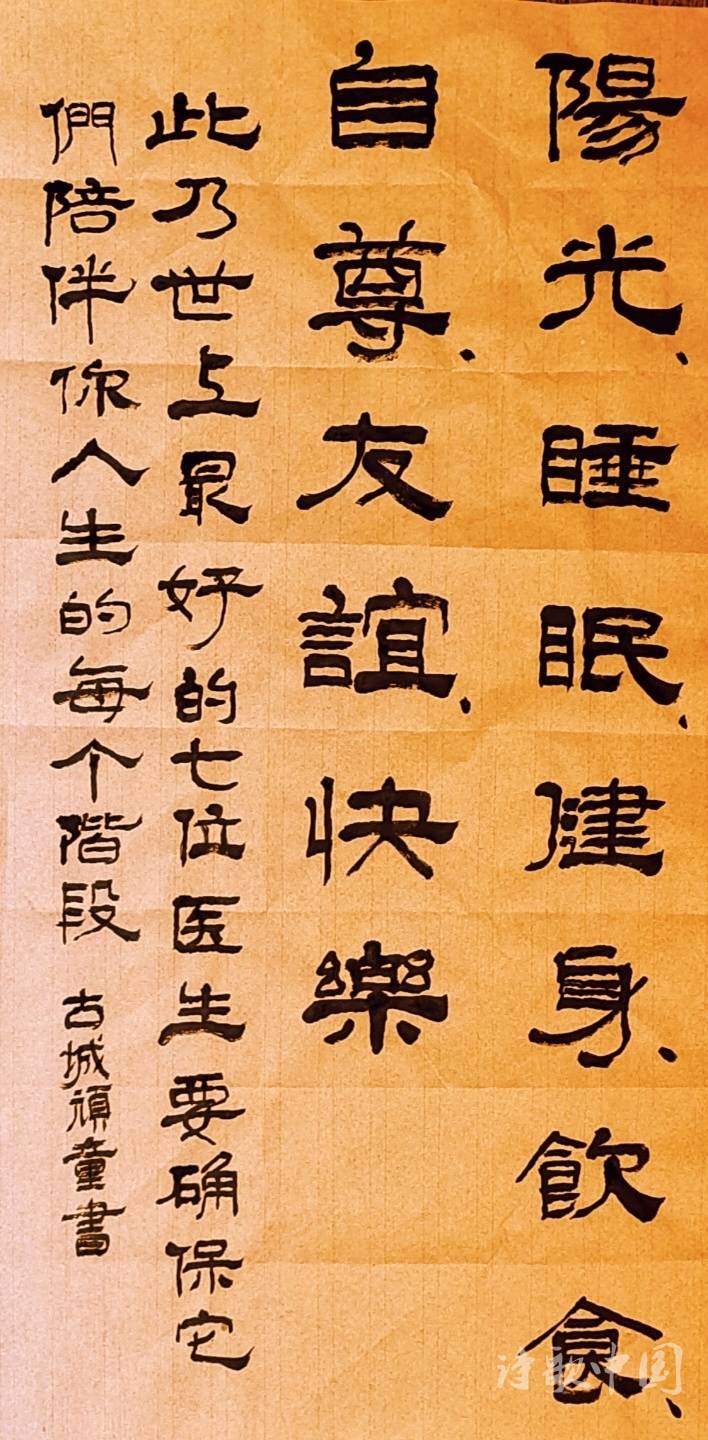 陽光、睡眠、健身、飲食、
自尊、友誼、快樂
此乃世上最好的七位医生要确保它
們陪伴你人生的每个階段
古城頑童書
诗歌中国